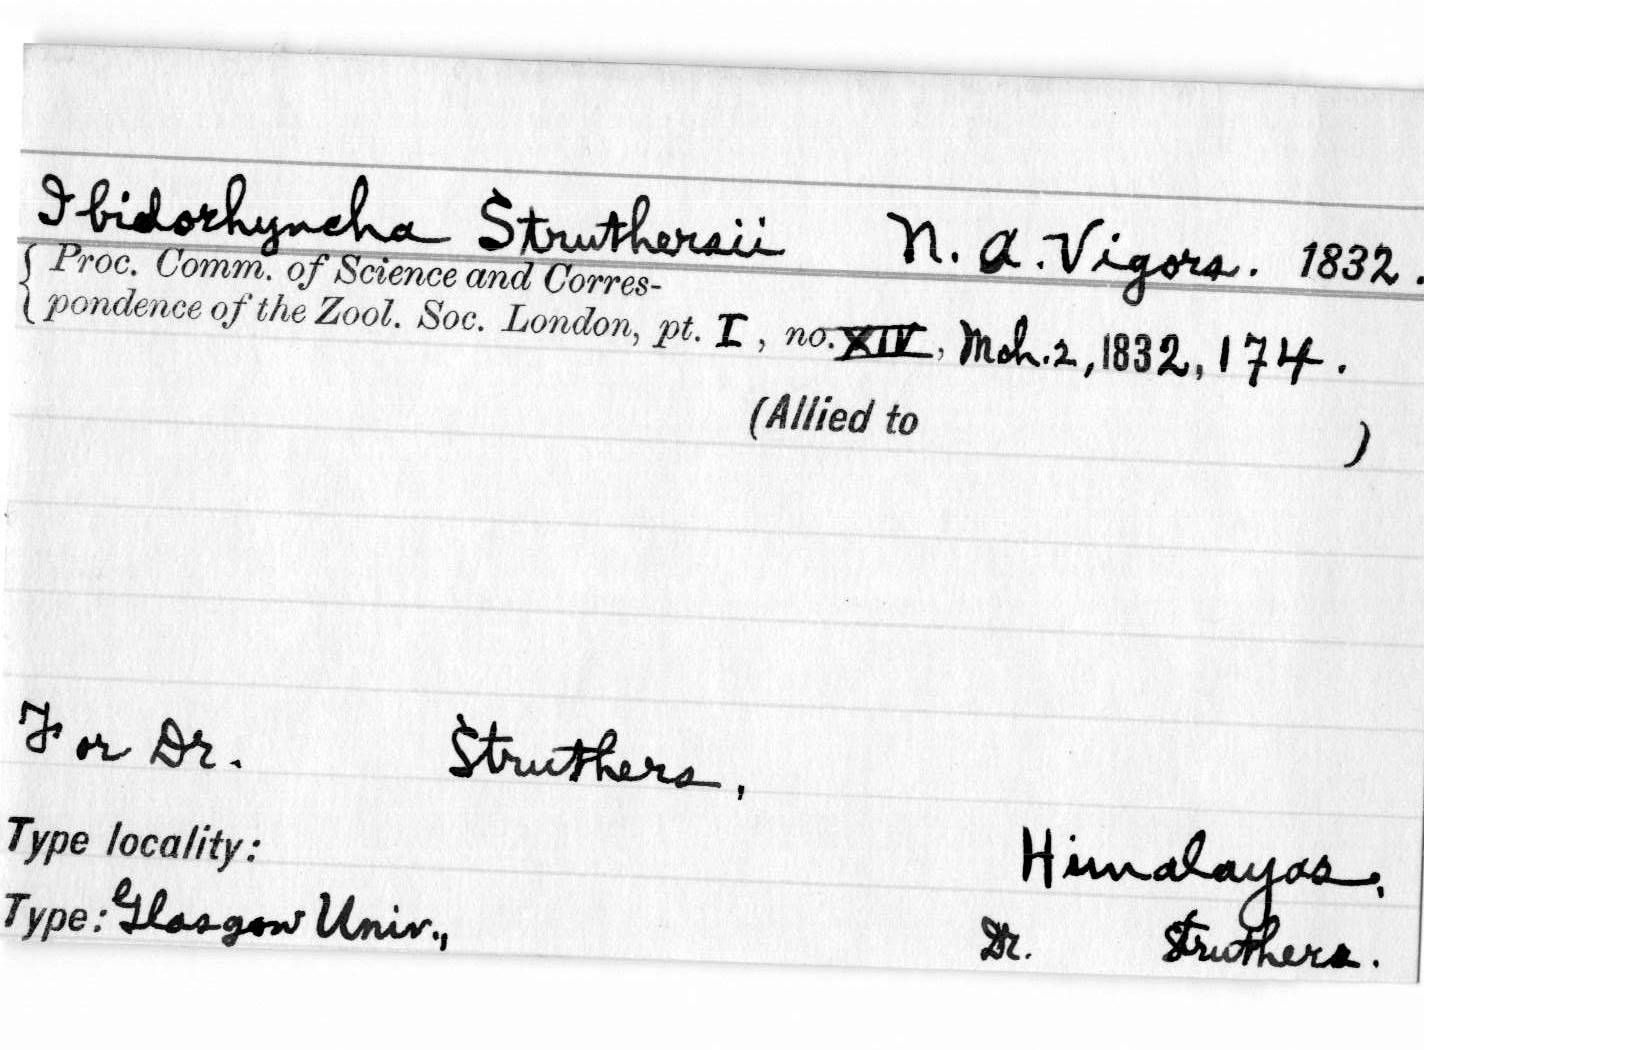 Ibidorhyncha Struthersii N. A. Vigors. 1832.
{ Proc. Comm. of Science and Corres-
pondence of the Zool. Soc. London, pt. I, no. XIV, Mch. 2, 1832, 174.
(Allied to )
For Dr. Struthers,
Type locality: Himalayas,
Type: Glasgow Univ., Dr. Struthers.